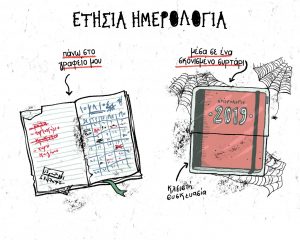 ΕΤΗΣΙΑ ΗΜΕΡΟΛΟΓΙΑ
πάνω στο
γραφείο μου
μέσα σε ένα
σκονισμένο συρτάρι
ΗΜΕΡΟΛΟΓΙΟ
2019
κλειστή
συσκευασία